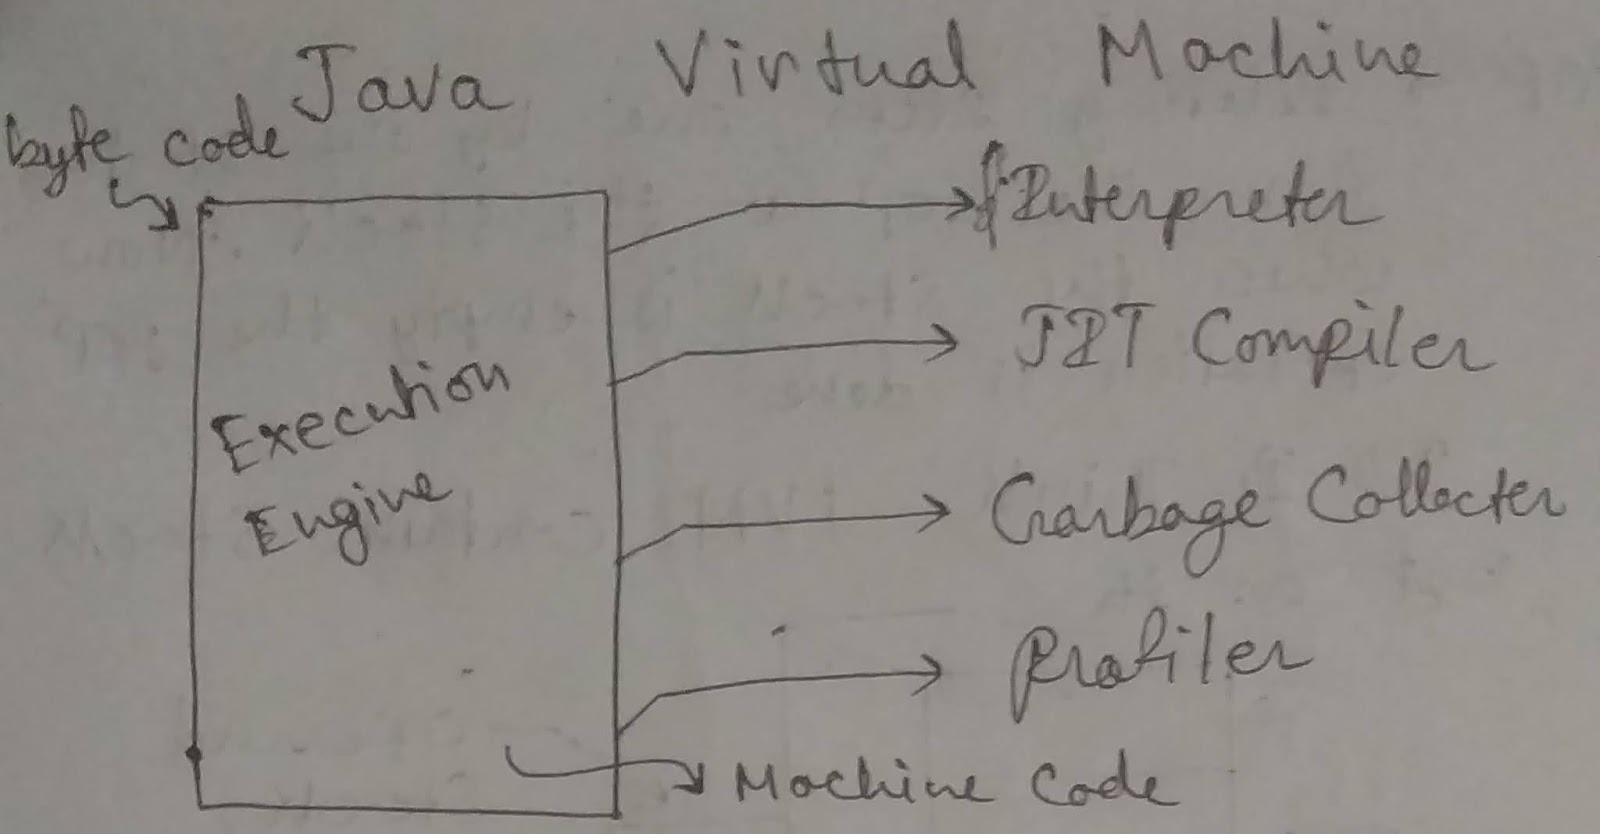 Java Virtual Machine
byte code
Interpreter
JIT Compiler
Execution
Engine
Garbage Collecter
Profiler
Machine Code